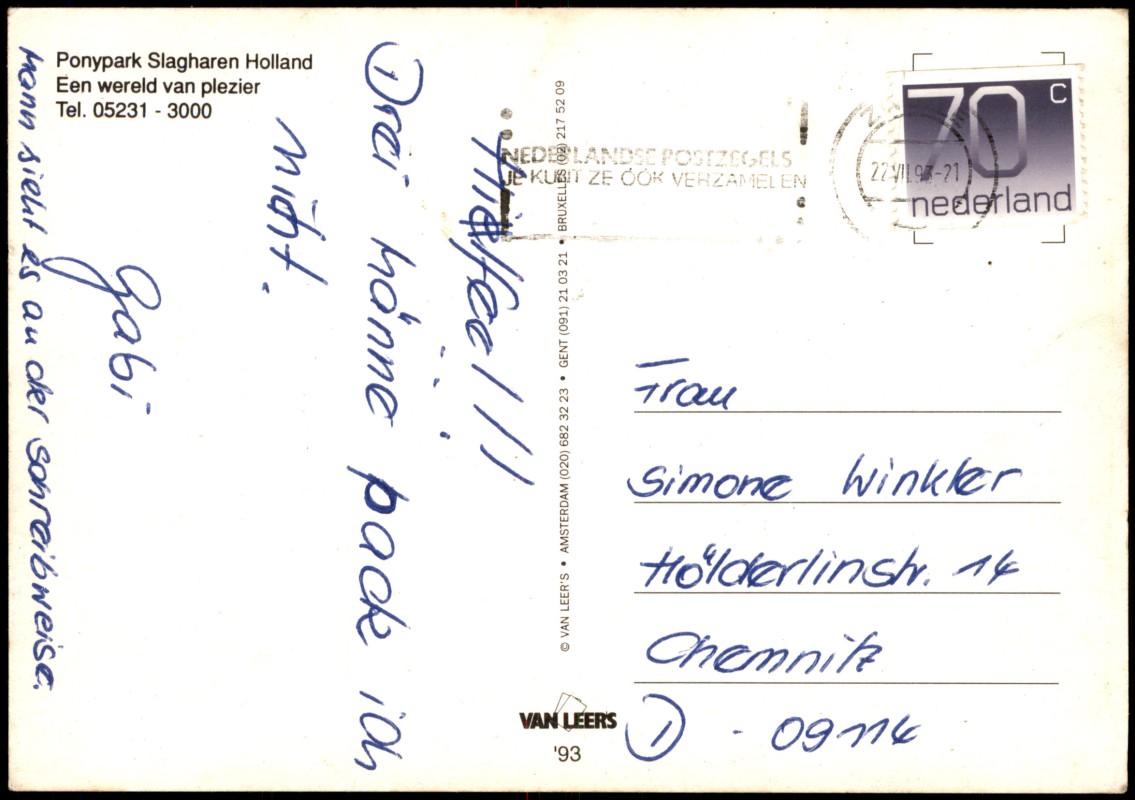 Ponypark Slagharen Holland
Een wereld van plezier
Tel. 05231 - 3000
Hilfee!!!
Drei Männe pack ich
nicht.
Gabi
Mann sieht es an der Schreibweise.
© VAN LEER'S • AMSTERDAM (020) 682 32 23 • GENT (091) 21 03 21 • BRUXELLES (02) 217 52 09
VAN LEER'S
'93
NEDERLANDSE POSTZEGELS
JE KUNT ZE ÓÓK VERZAMELEN
22.VII.93-21
70 c
nederland
Frau
Simone Winkler
Hölderlinstr. 14
Chemnitz
D - 09114